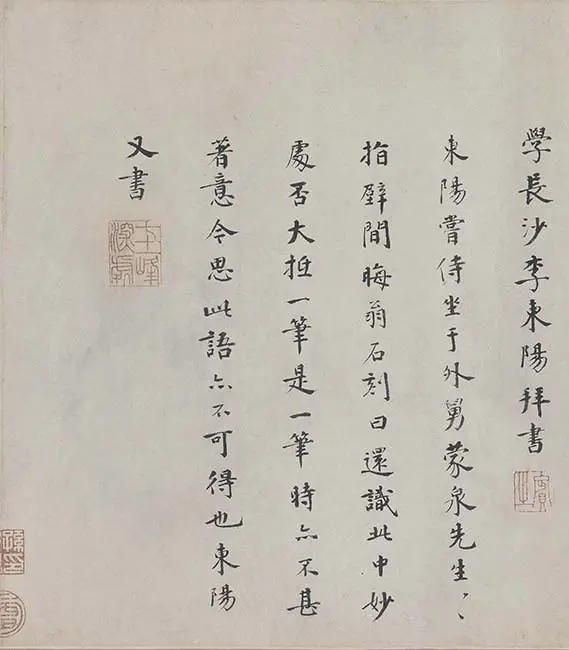 學長沙李東陽拜書
東陽嘗侍坐于外舅蒙泉先生〻
指壁間晦翁石刻曰還識此中妙
處否大抵一筆是一筆時亦不甚
著意今思此語亦不可得也東陽
又書
賓之